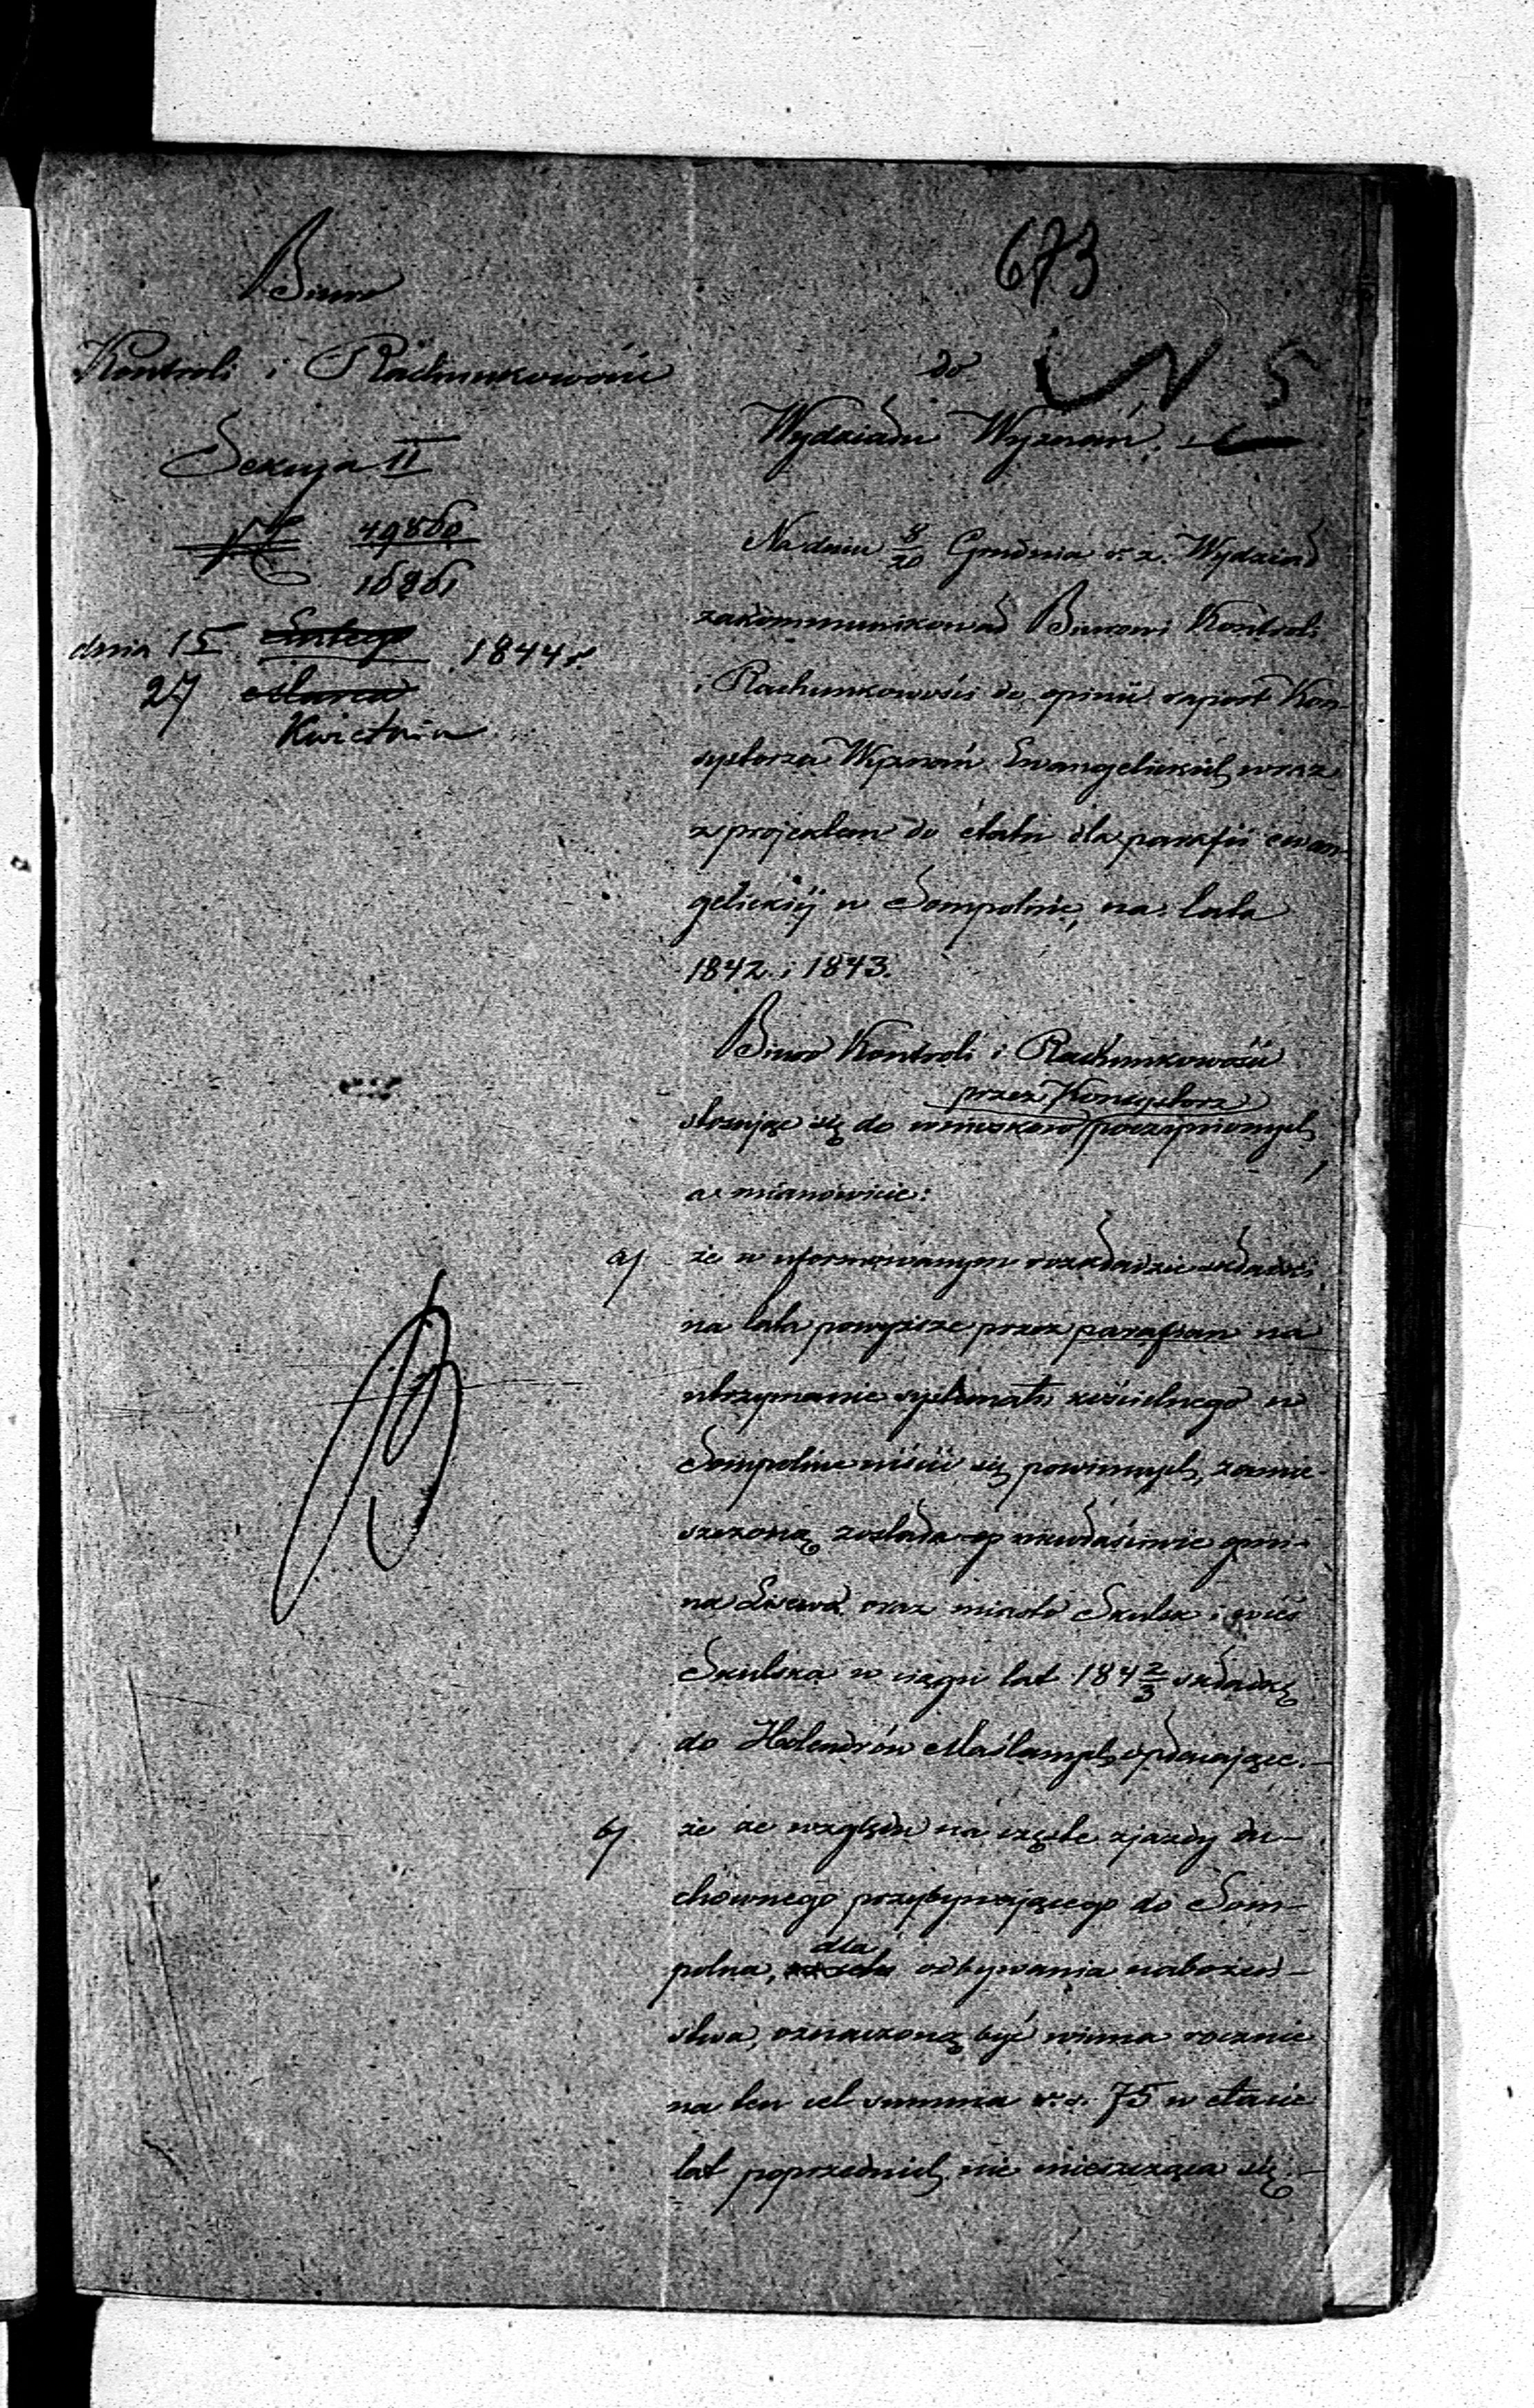 673
Biuro
Kontroli i Rachunkowości
Sekcya II
N 49860
16861
dnia 15 Lutego 1844 r.
27 Marca
Kwietnia
do N 5
Wydziału Wyznań.
Na dniu 8/20 Grudnia r. z. Wydział
zakommunikował Biurowi Kontroli
i Rachunkowości do opinii raport Kon-
systorza Wyznań Ewangelickich wraz
z projektem do etatu dla parafii ewan-
gelickiéj w Sompolnie, na lata
1842 i 1843.
Biuro Kontroli i Rachunkowości
przez Konsystorz
stosując się do wniosków poczynionych,
a mianowicie:
a/ że w uformowanym rozkładzie składki
na lata powyższe przez parafian na
utrzymanie systematu kościelnego w
Sompolnie uiścić się powinnych, zamie-
szczoną została niewłaściwie gmi-
na Lisewa oraz miasto Skulsk i wieś
Skulska w ciągu lat 184 2/3 składkę
do Holendrów Maślanych opłacające.
b/ że ze względu na częste zjazdy du-
chownego przybywającego do Som-
polna, dla odbywania nabożeń-
stwa, oznaczoną być winna rocznie
na ten cel summa r. s. 75 w etacie
lat poprzednich nie mieszcząca się.